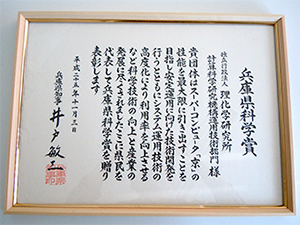 兵庫県科学賞
独立行政法人 理化学研究所
計算科学研究機構運用技術部門 様
貴団体はスーパーコンピュータ「京」の
技能を最大限に引き出すことを
目指し安定運用に向けた技術開発を
行うとともにシステム運用技術の
高度化により利用率を向上させる
など科学技術の向上と産業の
発展に尽くされましたことに県民を
代表して兵庫県科学賞を贈り
表彰します
平成二十五年十一月三日
兵庫県知事 井戸敏三